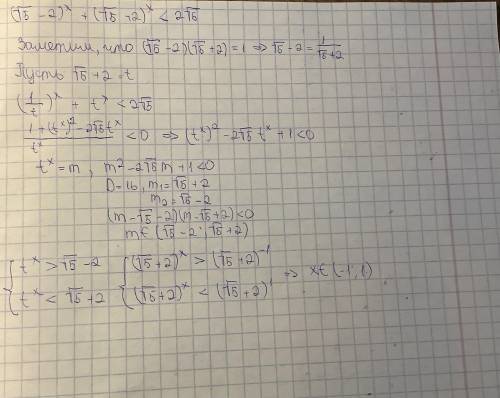 (√5-2)^x + (√5+2)^x < 2√5
Заметим, что (√5-2)(√5+2)=1 ⇒ √5-2 = 1/(√5+2)
Пусть √5+2=t
(1/t)^x + t^x < 2√5
(1+(t^x)^2-2√5t^x)/t^x < 0 ⇒ (t^x)^2-2√5 t^x+1<0
t^x=m, m^2-2√5m+1<0
D=16, m₁=√5+2
m₂=√5-2
(m-√5-2)(m-√5+2)<0
m∈(√5-2; √5+2)
{ t^x>√5-2 { (√5+2)^x > (√5+2)^-1
⇒ x∈(-1;1)
t^x<√5+2 (√5+2)^x < (√5+2)^1